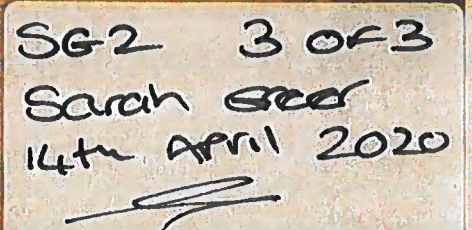 SG2 3 OF 3
Sarah Greer
14th April 2020